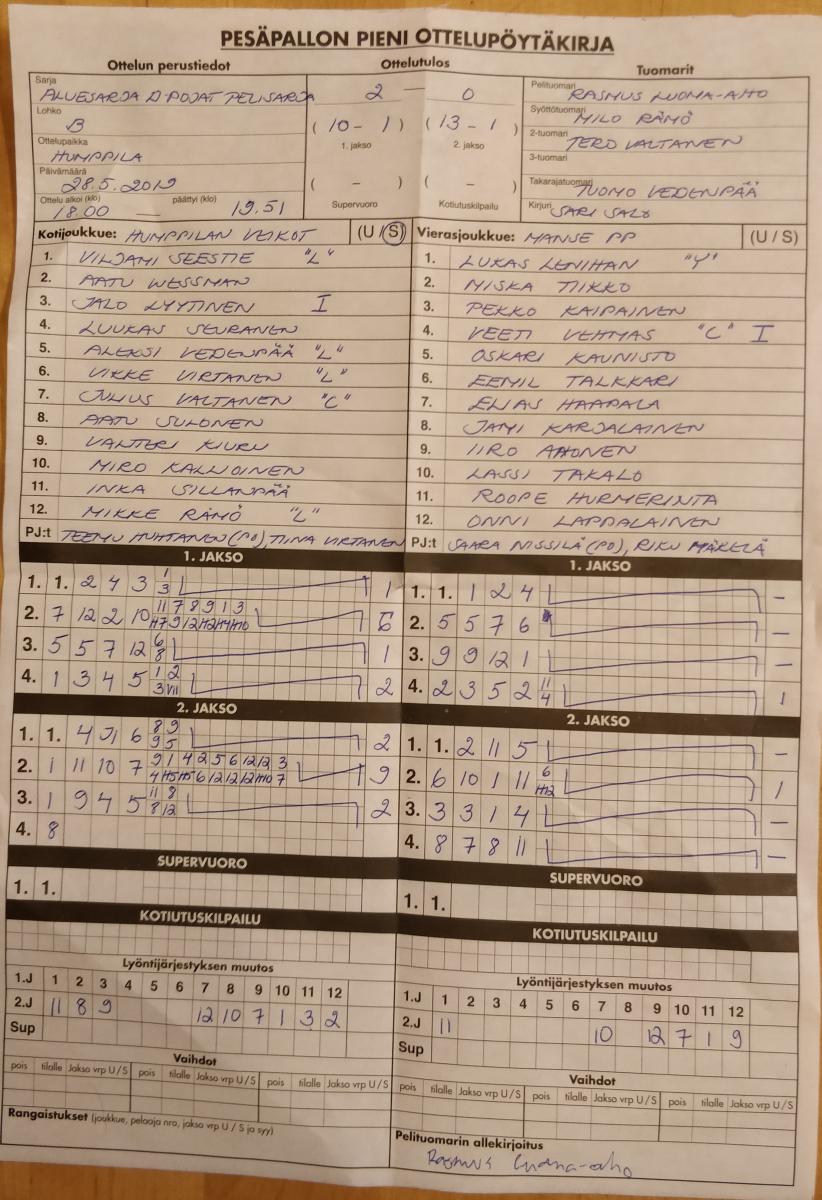 PESÄPALLON PIENI OTTELUPÖYTÄKIRJA
Ottelun perustiedot
Ottelutulos
Tuomarit
Sarja
ALUESARJA D-POJAT PELISARJA
2 — 0
Pelituomari
RASMUS LUOMA-AHO
Lohko
B
( 10 - 1 ) ( 13 - 1 )
1. jakso
2. jakso
Syöttötuomari
MILO RÄMÖ
Ottelupaikka
HUMPPILA
2-tuomari
TERO VALTANEN
3-tuomari
Päivämäärä
28.5.2019
( - ) ( - )
Supervuoro
Kotiutuskilpailu
Takarajatuomari
TUOMO VEDENPÄÄ
Ottelu alkoi (klo)
18.00 —
päättyi (klo)
19.51
Kirjuri
SARI SALO
Kotijoukkue: HUMPPILAN VEIKOT (U / S)
Vierasjoukkue: MANSE PP (U / S)
1. VILJAMI SEESTIE "L"
2. AATU WESSMAN
3. JALO LYYTINEN I
4. LUUKAS SEURANEN
5. ALEKSI VEDENPÄÄ "L"
6. VIKKE VIRTANEN "L"
7. JULIUS VALTANEN "C"
8. AATU SULONEN
9. VALTTERI KIURU
10. MIRO KALLIOINEN
11. INKA SILLANPÄÄ
12. MIKKE RÄMÖ "L"
PJ:t TEEMU HUHTANEN (PO), TIINA VIRTANEN
1. LUKAS LENIHAN "Y"
2. MISKA TIIKKO
3. PEKKO KAIPAINEN
4. VEETI VEHMAS "C" I
5. OSKARI KAUNISTO
6. EEMIL TALKKARI
7. ELIAS HAAPALA
8. JAMI KARJALAINEN
9. IIRO AHONEN
10. LASSI TAKALO
11. ROOPE HURMERINTA
12. ONNI LAPPALAINEN
PJ:t SAARA NISSILÄ (PO), RIKU MÄKELÄ
1. JAKSO
1. 1. 2 4 3 1 3 1
2. 7 12 2 10 11 7 8 9 1 3 6
3. 5 5 7 12 6 8 1
4. 1 3 4 5 1 2 2
1. JAKSO
1. 1. 1 2 4 –
2. 5 5 7 6 –
3. 9 9 12 1 –
4. 2 3 5 2 11 4 1
2. JAKSO
1. 1. 4 6 8 9 9 5 2
2. 1 11 10 7 9 1 4 2 5 6 12 12 3 9
3. 1 9 4 5 11 8 8 12 2
4. 8
2. JAKSO
1. 1. 2 11 5 –
2. 6 10 1 11 6 1
3. 3 3 1 4 –
4. 8 7 8 11 –
SUPERVUORO
1. 1.
SUPERVUORO
1. 1.
KOTIUTUSKILPAILU
KOTIUTUSKILPAILU
Lyöntijärjestyksen muutos
1.J 1 2 3 4 5 6 7 8 9 10 11 12
2.J 11 8 9 12 10 7 1 3 2
Sup
Lyöntijärjestyksen muutos
1.J 1 2 3 4 5 6 7 8 9 10 11 12
2.J 11 10 12 7 1 9
Sup
Vaihdot
pois tilalle Jakso vrp U / S pois tilalle Jakso vrp U / S pois tilalle Jakso vrp U / S
Vaihdot
pois tilalle Jakso vrp U / S pois tilalle Jakso vrp U / S pois tilalle Jakso vrp U / S
Rangaistukset (joukkue, pelaaja nro, jakso vrp U / S ja syy)
Pelituomarin allekirjoitus
Rasmus Luoma-aho